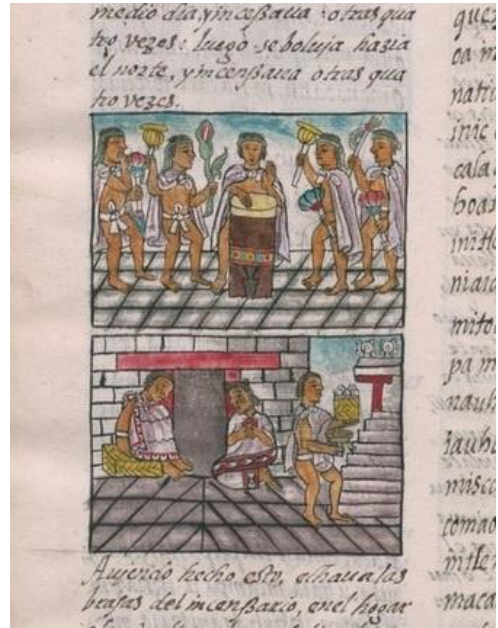 medio dia, yincenßaua otras qua
tro vezes: luego se boluja hazia
el norte, yincenßaua otras qua
tro vezes.
Aujendo hecho esto, echaua las
brasas del incenßario, enel hogar
quez
oa m
natiu
inic
cala
hoaz
mitle
niaic
mitoc
pa m
nauh
iauho
misco
comao
mitle
maca